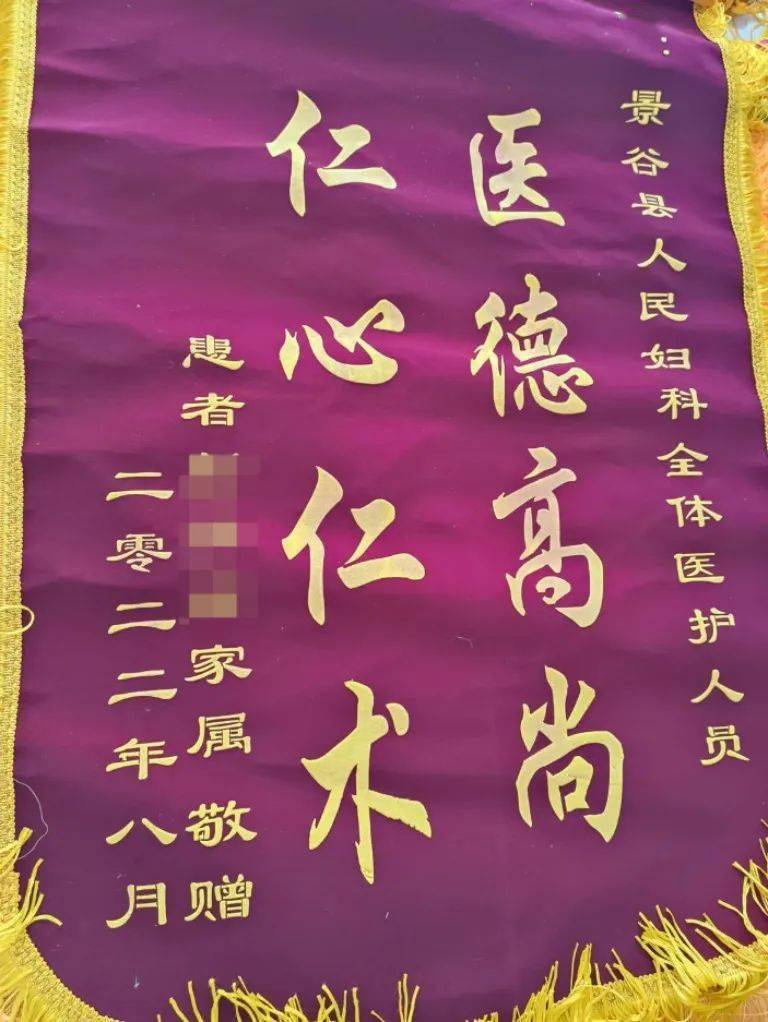 景谷县人民妇科全体医护人员
医德高尚
仁心仁术
患者
家属敬赠
二零二二年八月